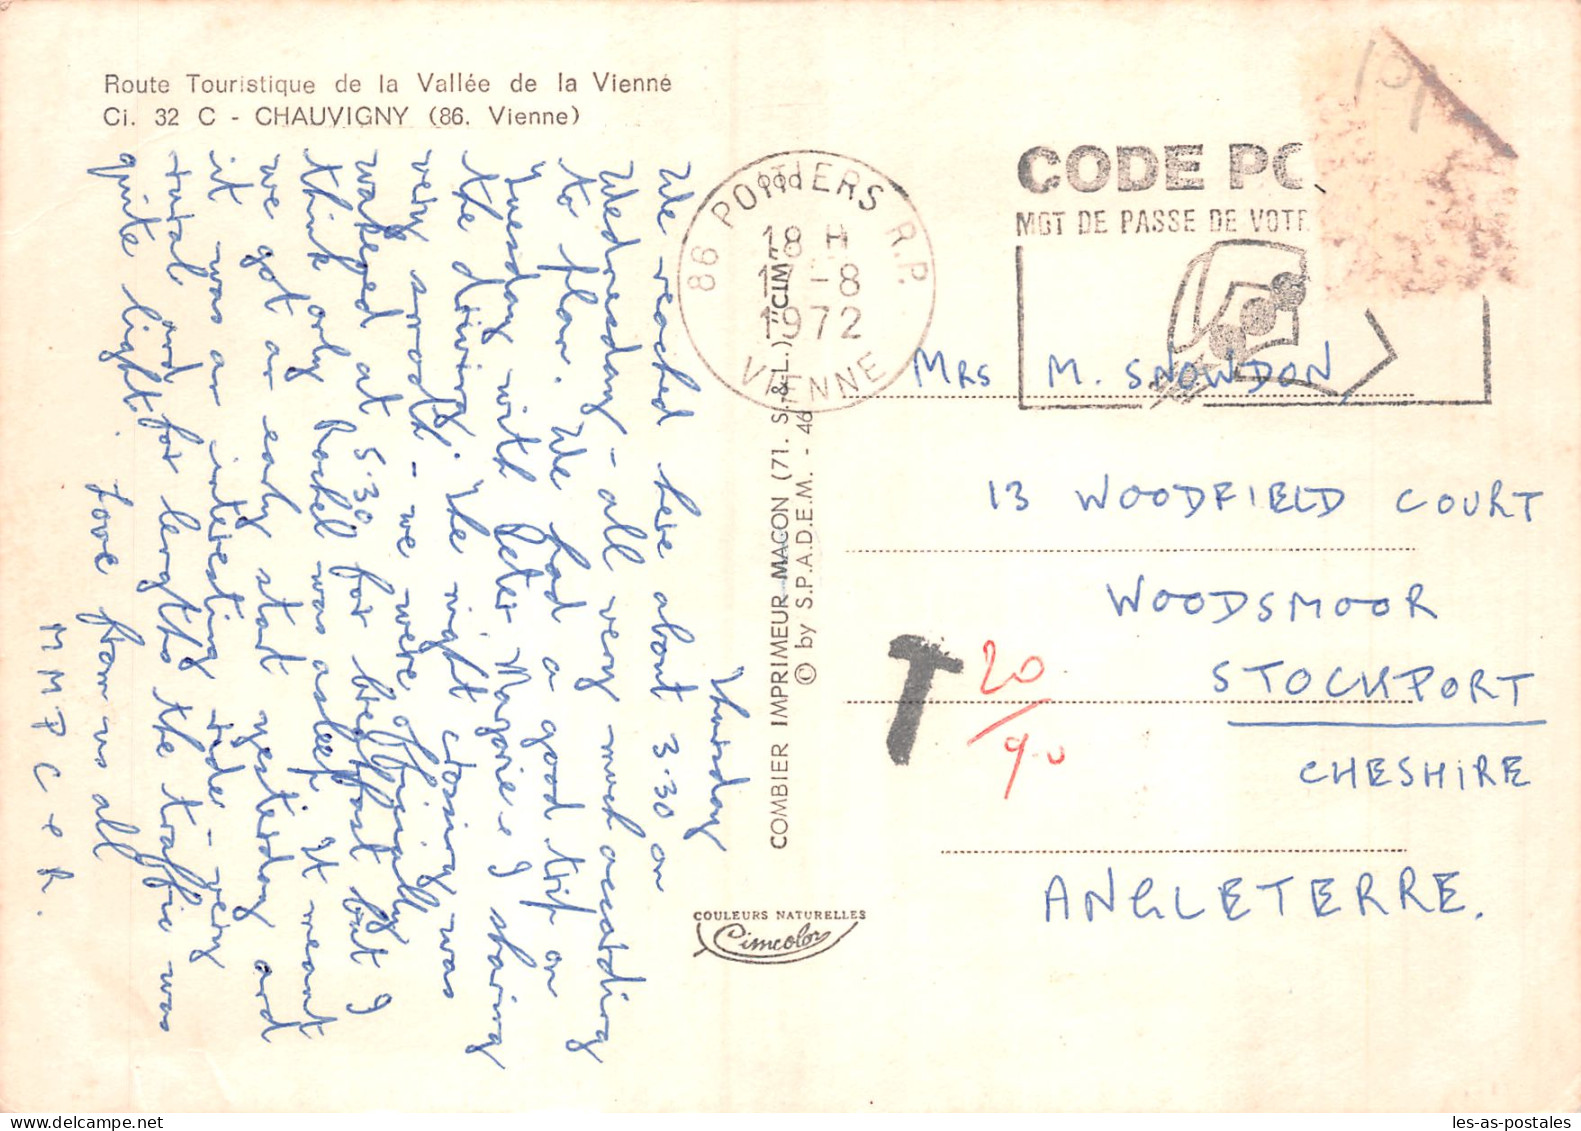 Route Touristique de la Vallée de la Vienne
Ci. 32 C - CHAUVIGNY (86. Vienne)
Thursday
We reached here about 3.30 on
Wednesday - all very much according
to plan. We had a good trip on
Tuesday with Peter Marjorie & I sharing
the driving. The night crossing was
very smooth - we were officially
wakened at 5.30 for breakfast but I
think only Rachel was asleep. It meant
we got an early start yesterday and
it was an interesting ride - very
rural and for lengths the traffic was
quite light. Love from us all
M M P C & R.
86 POITIERS R.P.
18 H
17 -8
1972
VIENNE
CODE PO
MOT DE PASSE DE VOTR
COMBIER IMPRIMEUR MACON (71. S.-&-L.) "CIM"
© by S.P.A.D.E.M. - 46
MRS M. SNOWDON
13 WOODFIELD COURT
WOODSMOOR
STOCKPORT
CHESHIRE
ANGLETERRE.
T
20
90
COULEURS NATURELLES
Cimcolor
les-as-postales